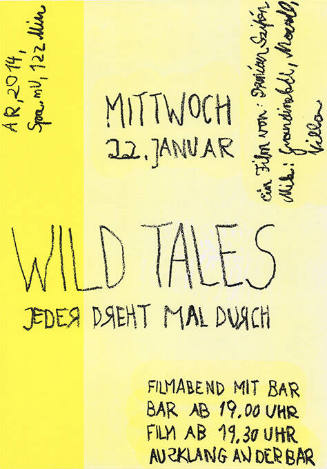 AR, 2014,
Spa. mU, 122 Min
ein Film von: Damian Szifrón
Mit:
Villa
MITTWOCH
22. JANUAR
WILD TALES
JEDER DREHT MAL DURCH
FILMABEND MIT BAR
BAR AB 19.00 UHR
FILM AB 19.30 UHR
AUSKLANG AN DER BAR